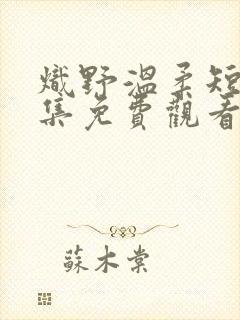 熾野溫柔短
集免費觀看
蘇木棠